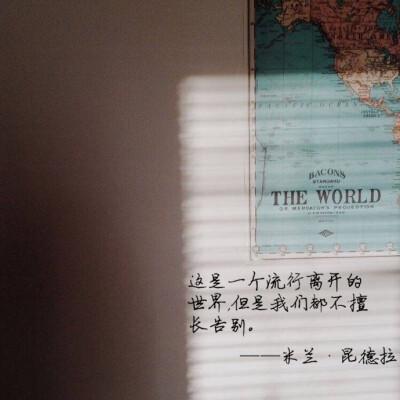 BACON'S
STANDARD
THE WORLD
ON MERCATOR'S PROJECTION
这是一个流行离开的
世界,但是我们都不擅
长告别。
——米兰·昆德拉